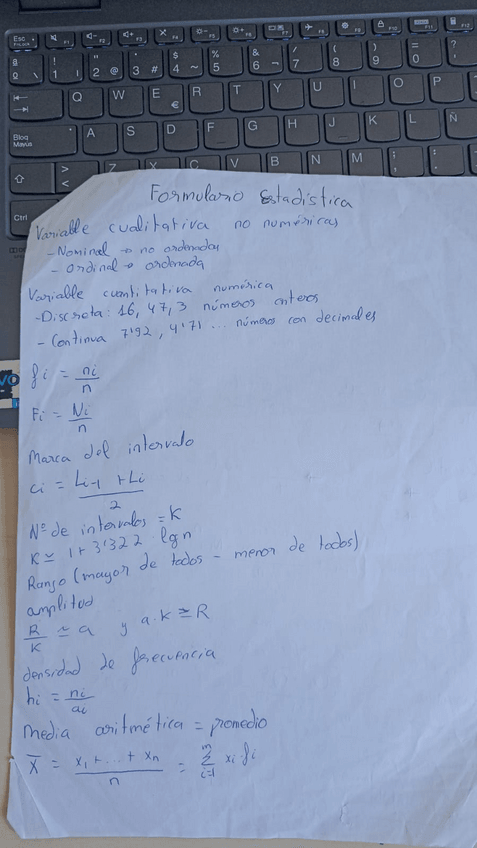 Esc
F1
F2
F3
F4
F5
F6
F7
F8
F9
F10
F11
F12
! 1 |
" 2 @
· 3 #
$ 4 ~
% 5
& 6 ¬
/ 7
( 8
) 9
= 0
? '
Q W E € R T Y U I O P
Bloq
Mayus
A S D F G H J K L Ñ
> <
Z X C V B N M ; , :
Ctrl
Formulario Estadística
Variable cualitativa no numéricas
- Nominal → no ordenadas
- Ordinal → ordenada
Variable cuantitativa numérica
- Discreta: 16, 47, 3 números enteros
- Continua 7'92, 4'71 ... números con decimales
fi = ni/n
Fi = Ni/n
Marca del intervalo
ci = Li-1 + Li / 2
Nº de intervalos = K
K ≃ 1 + 3'322 · lg n
Rango (mayor de todos - menor de todos)
amplitud
R/K ≃ a y a·K ≃ R
densidad de frecuencia
hi = ni/ai
Media aritmética = promedio
X̄ = x1 + ... + xn / n = Σ i=1 n xi·fi